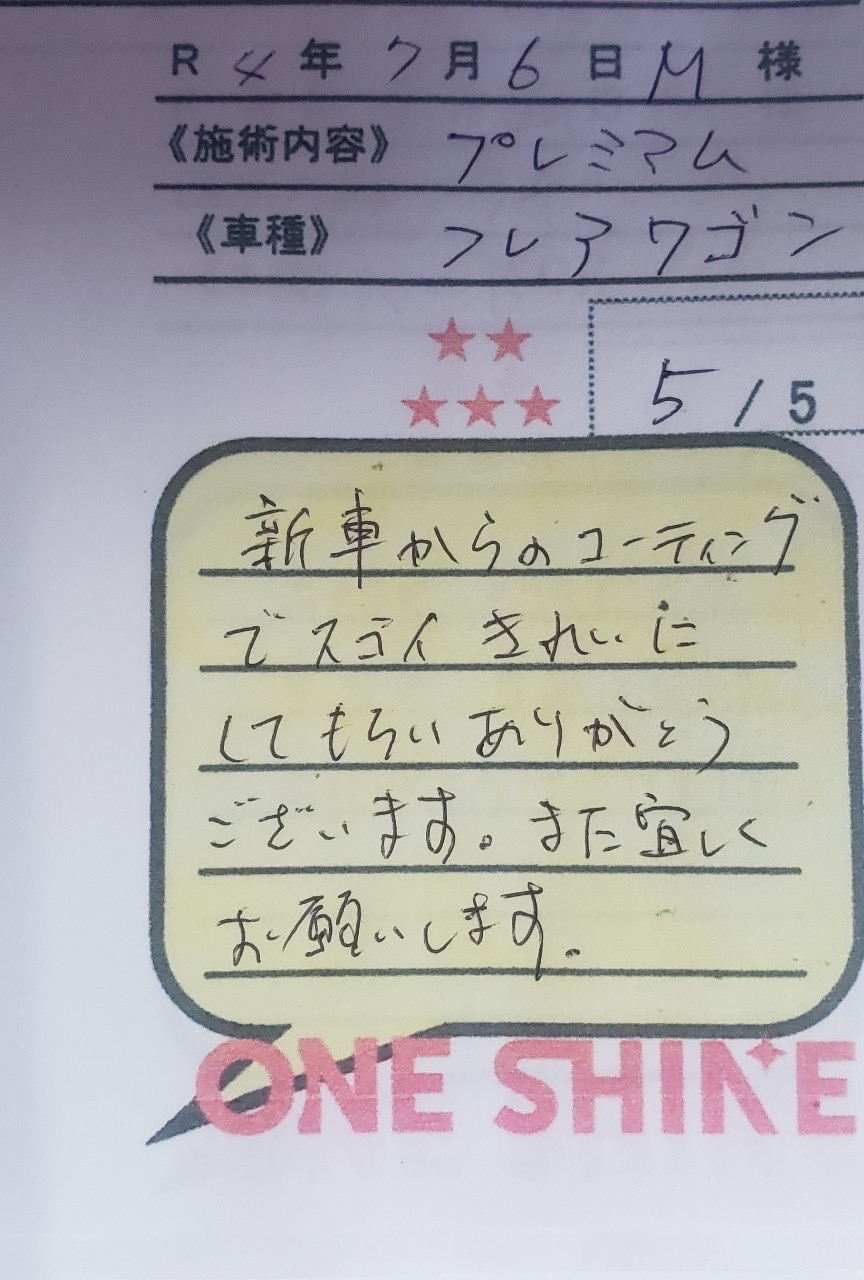 R 4年 7月 6日 M 様
《施術内容》 プレミマム
《車種》 フレアワゴン
5 / 5
新車からのコーティング
でスゴイきれいに
してもらいありがとう
ございます。また宜しく
お願いします。
ONE SHINE